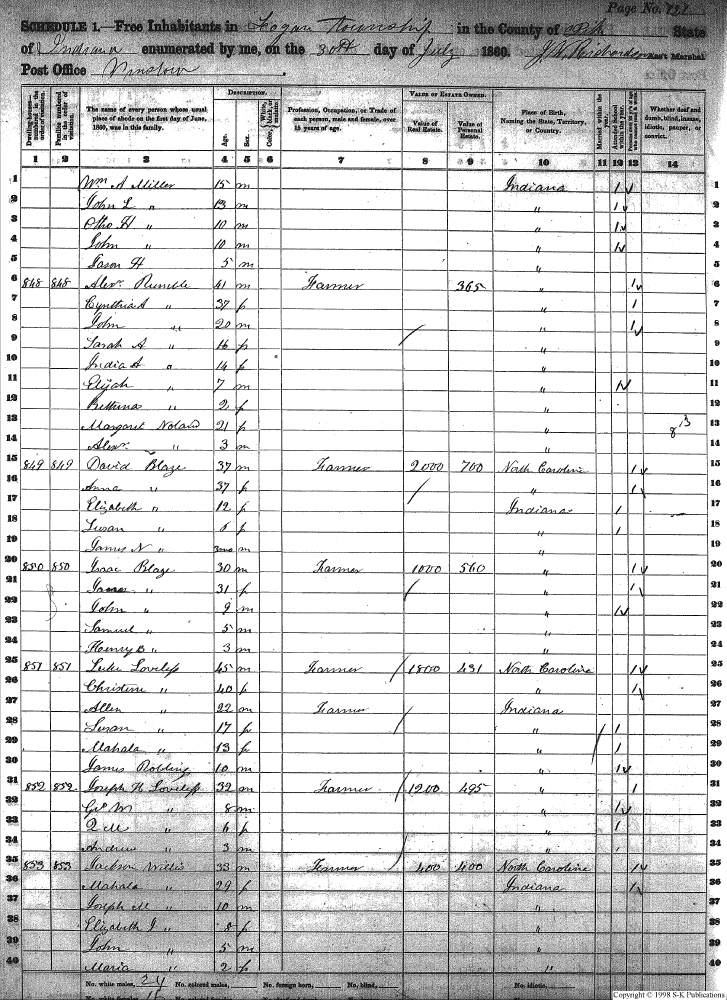 Page No.
SCHEDULE 1.—Free Inhabitants in Logan Township in the County of Pike State
of Indiana enumerated by me, on the 30th day of July 1860. Ass't Marshal
Post Office Winslow.
DESCRIPTION. VALUE OF ESTATE OWNED.
Dwelling-houses—numbered in the order of visitation. Families numbered in the order of visitation. The name of every person whose usual place of abode on the first day of June, 1860, was in this family. Age. Sex. Color, White, black, or mulatto. Profession, Occupation, or Trade of each person, male and female, over 15 years of age. Value of Real Estate. Value of Personal Estate. Place of Birth, Naming the State, Territory, or Country. Married within the year. Attended School within the year. Whether deaf and dumb, blind, insane, idiotic, pauper, or convict.
1 2 3 4 5 6 7 8 9 10 11 12 13 14
1 Wm A Miller 15 m Indiana 1 1
2 John L " 13 m " 1 2
3 Otho H " 10 m " 1 3
4 John " 10 m " 1 4
5 Jason H 5 m " 5
6 848 848 Alexr Rumble 41 m Farmer 365 " 1 6
7 Cynthia A " 37 f " 1 7
8 John " 20 m " 1 8
9 Sarah A " 16 f " 9
10 India A " 14 f " 10
11 Elijah " 7 m " 1 11
12 " 2 f " 12
13 Margaret Noland 21 f " 13
14 Alexr " 3 m " 14
15 849 849 David Blaze 37 m Farmer 2000 700 North Carolina 1 15
16 Anna " 37 f " 1 16
17 Elizabeth " 12 f Indiana 1 17
18 Susan " 6 f " 1 18
19 James N " m " 19
20 850 850 Isaac Blaze 30 m Farmer 1000 560 " 1 20
21 " 31 f " 1 21
22 John " 9 m " 1 22
23 Samuel " 5 m " 23
24 Henry B " 3 m " 24
25 851 851 Luke Loveless 45 m Farmer 1800 431 North Carolina 1 25
26 Christine " 40 f " 1 26
27 Allen " 22 m Farmer Indiana 27
28 Susan " 17 f " 1 28
29 Mahala " 13 f " 1 29
30 James Robling 10 m " 1 30
31 852 852 Joseph H Loveless 32 m Farmer 1200 495 " 1 31
32 Geo W " 8 m " 1 32
33 " 6 f " 1 33
34 Andrew " 3 m " 34
35 853 853 Jackson Willis 33 m Farmer 400 400 North Carolina 1 35
36 Mahala " 29 f Indiana 1 36
37 Joseph M " 10 m " 37
38 Elizabeth J " 8 f " 38
39 John " 5 m " 39
40 Maria " 2 f " 40
No. white males, 24 No. colored males, No. foreign born, No. blind, No. idiotic,
Copyright © 1998 S-K Publications